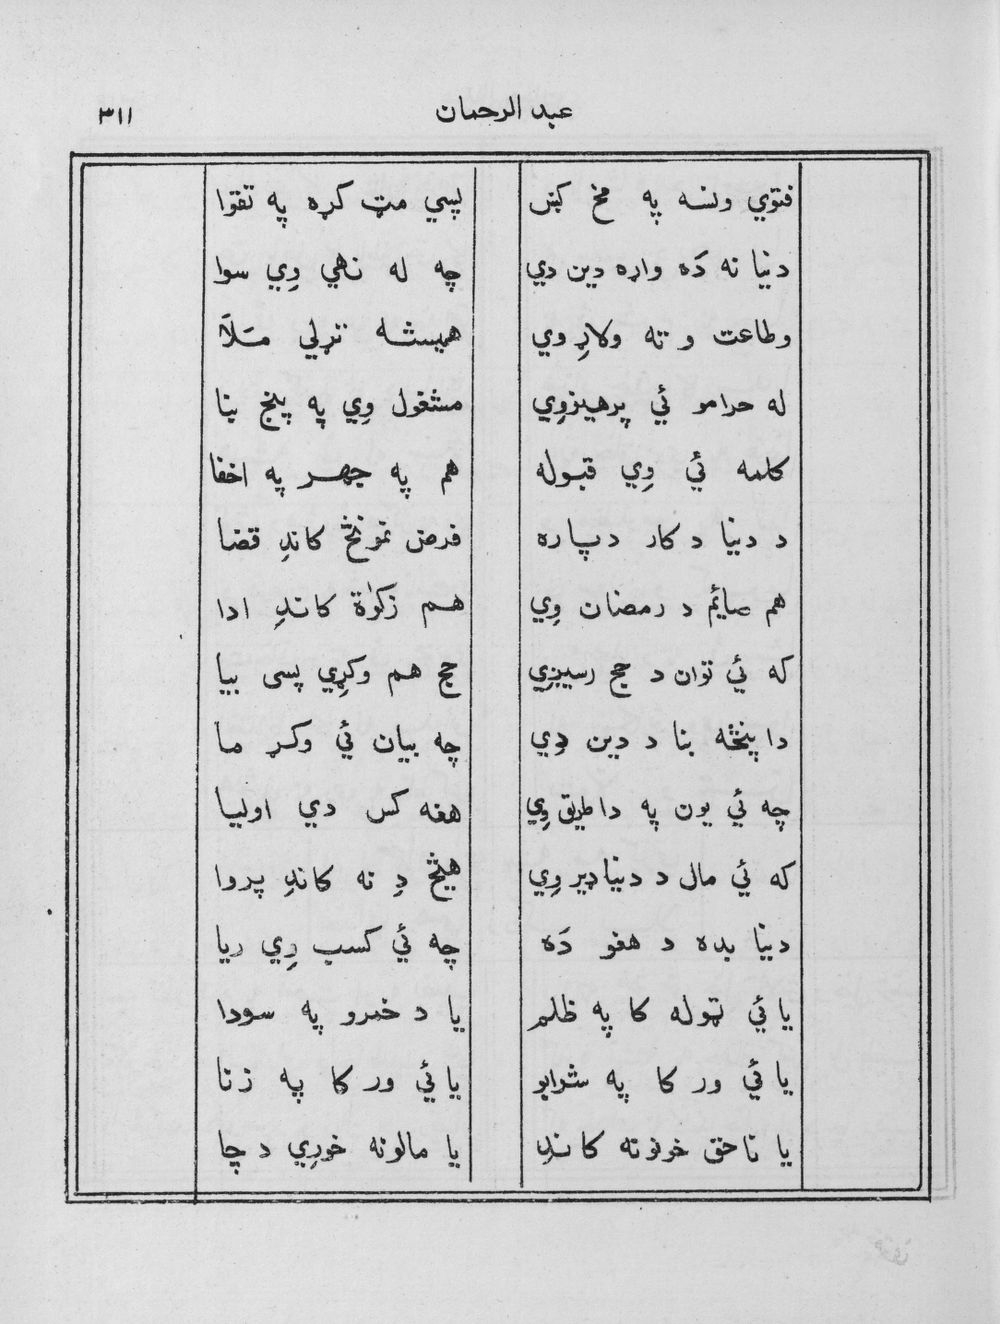 عبد الرحمان ۳۱۱
فتوي ونسه په مخ کښ پسي مټ کړه په تقوا
دنیا نه دَه واړه دین دي چه له نهي وِي سوا
وطاعت وته ولاړِ وي همیشه تړلي مَلَآ
له حرامو ئي پرهیزوِي مشغول وِي په پنج بنا
کلمه ئي وِي قبوله هم په جهر په اخفا
د دنیا د کار دپاره فرض نمونځ کاندِ قضا
هم صایٔم د رمضان وِي هم زکوٰة کاندِ ادا
که ئي توان د حج رسیږِي حج هم وکړِي پسی بیا
دا پنځه بنا د دین دِي چه بیان ئي وکړ ما
چه ئي یون په دا طریق وِي هغه کس دي اولیا
که ئي مال د دنیا ډیر وِي هیڅ دِ نه کاندِ پروا
دنیا بده د هغو دَه چه ئي کسب وِي ریا
یا ئي ټوله کا په ظلم یا د خمرو په سودا
یا ئي ور کا په شرابو یا ئي ور کا په زنا
یا ناحق خونونه کاندِ یا مالونه خورِي د چا